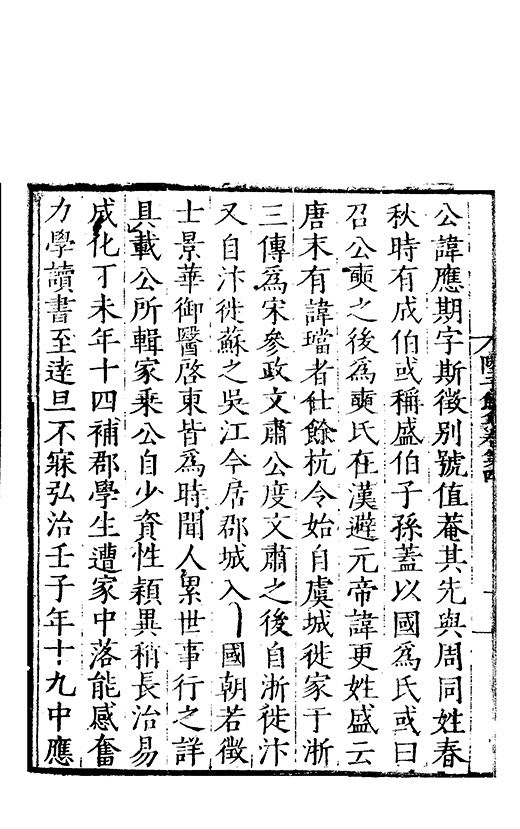 公諱應期字斯徵別號值菴其先與周同姓春
秋時有成伯或稱盛伯子孫蓋以國爲氏或曰
召公奭之後爲奭氏在漢避元帝諱更姓盛云
唐末有諱璫者仕餘杭令始自虞城徙家于浙
三傳爲宋參政文肅公度文肅之後自浙徙汴
又自汴徙蘇之吳江今居郡城入國朝若徵
士景華御醫啓東皆爲時聞人累世事行之詳
具載公所輯家乘公自少資性穎異稍長治易
成化丁未年十四補郡學生遭家中落能感奮
力學讀書至達旦不寐弘治壬子年十九中應